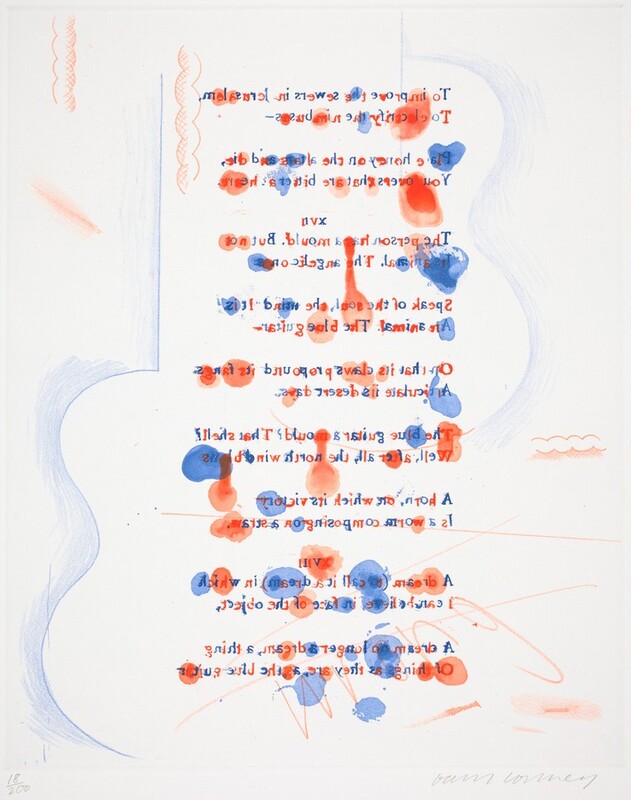 To improve the sewers in Jerusalem,
To electrify the nimbuses—
Place honey on the altars and die,
You lovers that are bitter at heart.
XVII
The person has a mould. But not
Its animal. The angelic ones
Speak of the soul, the mind. It is
An animal. The blue guitar—
On that its claws propound, its fangs
Articulate its desert days.
The blue guitar a mould? That shell?
Well, after all, the north wind blows
A horn, on which its victory
Is a worm composing on a straw.
XVIII
A dream (to call it a dream) in which
I can believe, in face of the object,
A dream no longer a dream, a thing
Of things as they are, as the blue guitar
18/200